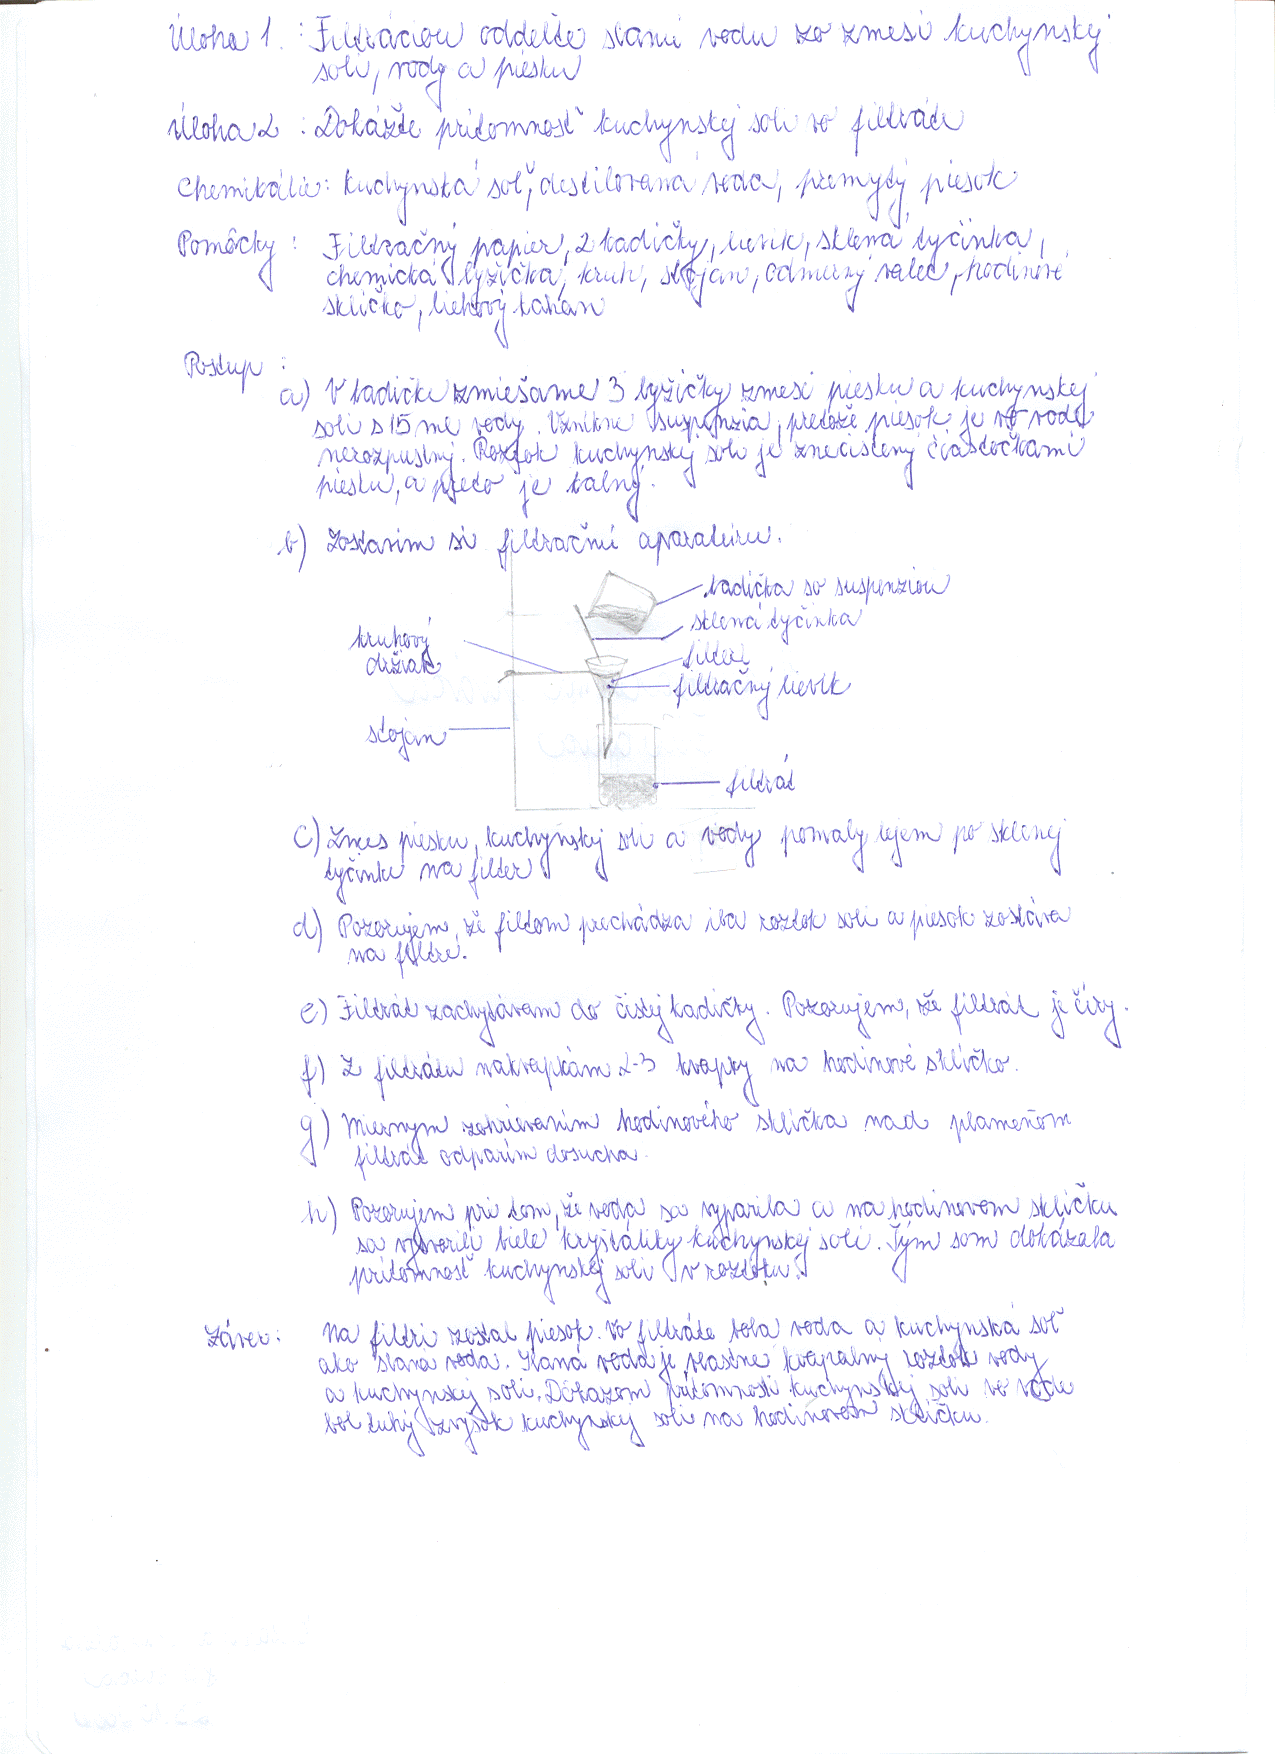 Úloha 1. : Filtráciou oddeľte slanú vodu zo zmesi kuchynskej
soli, vody a piesku
Úloha 2 : Dokážte prítomnosť kuchynskej soli vo filtráte
Chemikálie: kuchynská soľ, destilovaná voda, premytý piesok
Pomôcky : Filtračný papier, 2 kadičky, lievik, sklená tyčinka,
chemická lyžička, kruh, stojan, odmerný valec, hodinové
sklíčko, liehový kahan
Postup :
a) V kadičke zmiešame 3 lyžičky zmesi piesku a kuchynskej
soli s 15 ml vody. Vznikne suspenzia, pretože piesok je vo vode
nerozpustný. Roztok kuchynskej soli je znečistený čiastočkami
piesku, a preto je kalný.
b) Zostavím si filtračnú aparatúru.
kadička so suspenziou
sklená tyčinka
kruhový
držiak
filter
filtračný lievik
stojan
filtrát
c) Zmes piesku, kuchynskej soli a vody pomaly lejem po sklenej
tyčinke na filter
d) Pozorujem, že filtom prechádza iba roztok soli a piesok zostáva
na filtri.
e) Filtrát zachytávam do čistej kadičky. Pozorujem, že filtrát je číry.
f) Z filtrátu nakvapkám 2-3 kvapky na hodinové sklíčko.
g) Miernym zohrievaním hodinového sklíčka nad plameňom
filtrát odparím dosucha.
h) Pozorujem pri tom, že voda sa vyparila a na hodinovom sklíčku
sa vytvorili biele kryštáliky kuchynskej soli. Tým som dokázala
prítomnosť kuchynskej soli v roztoku.
Záver: Na filtri zostal piesok. Vo filtráte bola voda a kuchynská soľ
ako slaná voda. Slaná voda je vlastne kvapalný roztok vody
a kuchynskej soli. Dôkazom prítomnosti kuchynskej soli vo vode
bol tuhý zvyšok kuchynskej soli na hodinovom sklíčku.